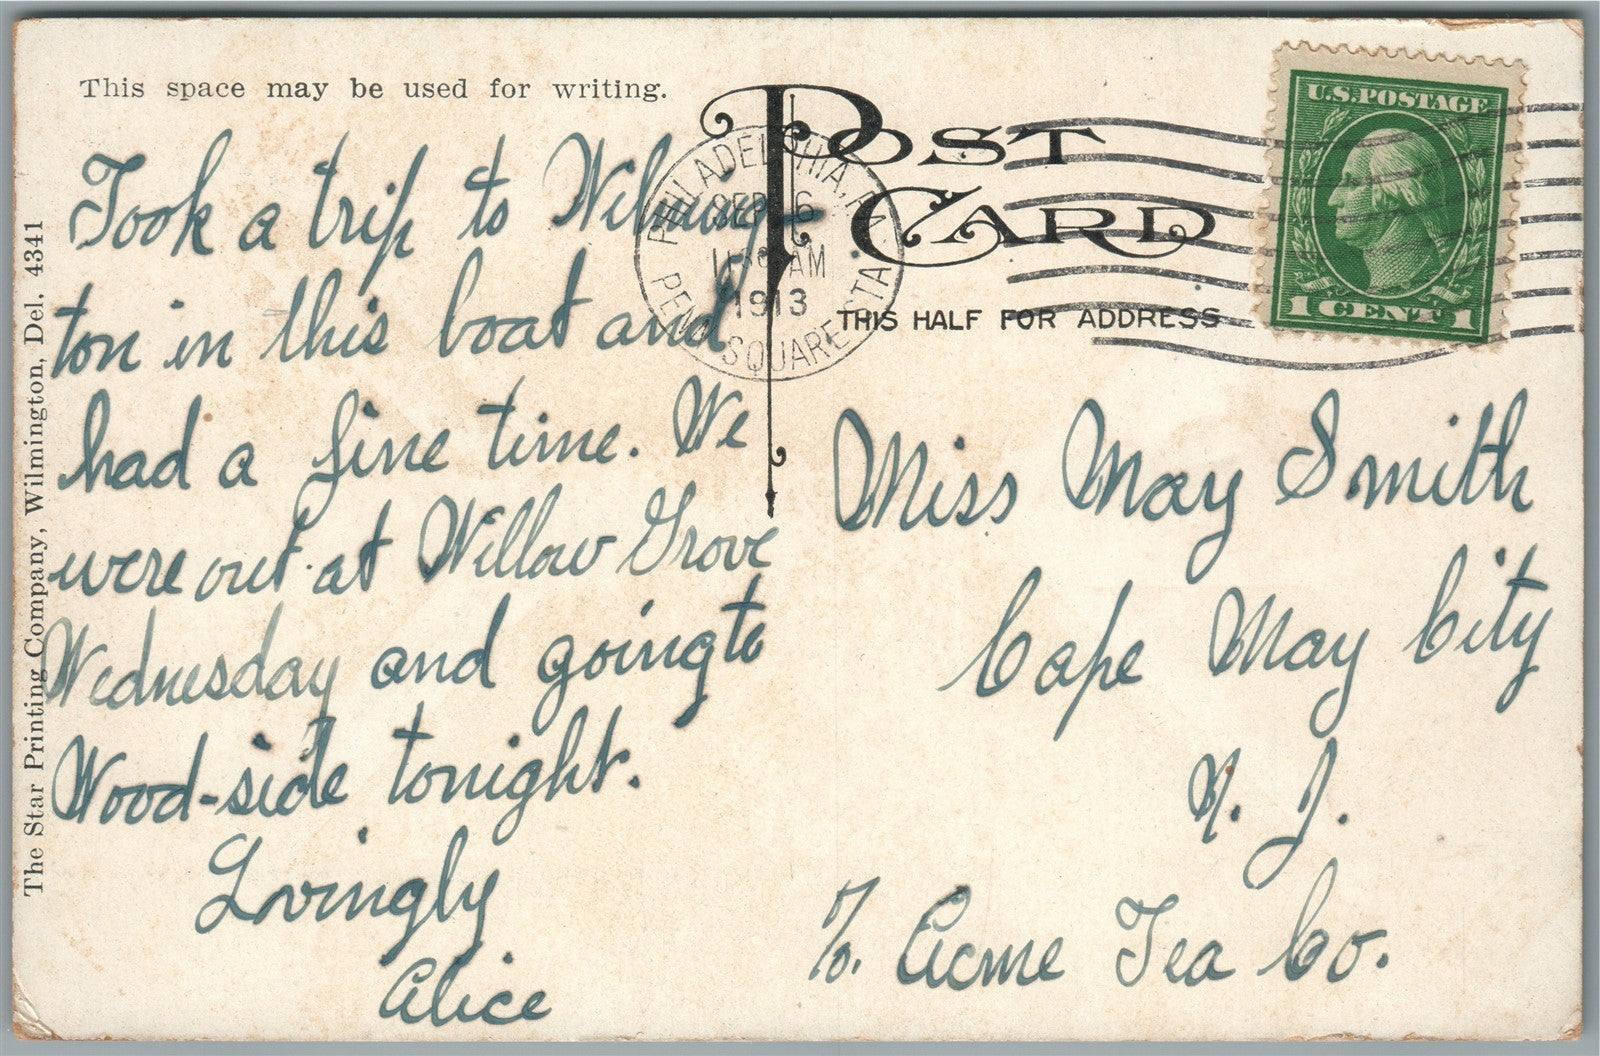 This space may be used for writing.
POST CARD
THIS HALF FOR ADDRESS
U.S. POSTAGE
1 CENT 1
PHILADELPHIA, PA.
SEP 6
AM
1913
PENN SQUARE STA.
Took a trip to Wilming-
ton in this boat and
had a fine time. We
were out at Willow Grove
Wednesday and going to
Wood-side tonight.
Lovingly
Alice
Miss May Smith
Cape May City
N. J.
c/o. Acme Tea Co.
The Star Printing Company, Wilmington, Del. 4341